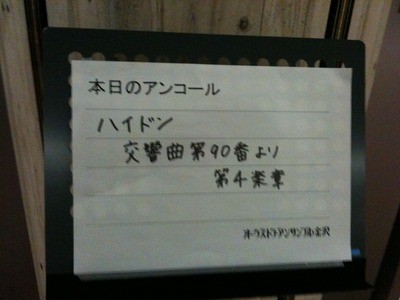 本日のアンコール
ハイドン
交響曲第90番より
第4楽章
オーケストラ・アンサンブル・金沢